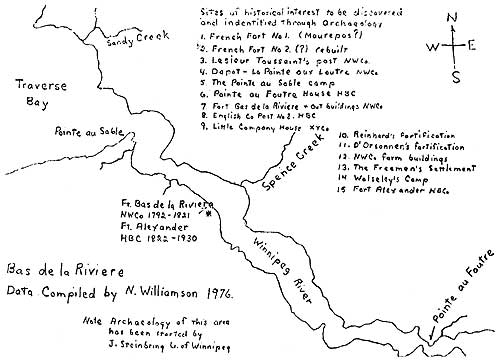 Sites of historical interest to be discovered
and indentified Through Archaeology
1. French Fort No 1. (Maurepas?)
2. French Fort No 2. (?) rebuilt
3. Lesieur Toussaint's post NWCo.
4. Dapot - La Pointe aux Loutre NWCo
5. The Pointe au Sable camp
6. Pointe au Foutre House HBC
7 Fort Bas de la Riviere + out buildings NWCo
8. English Co Post No 2. HBC
9. Little Company House XYCo
10. Reinhard's fortification
11. D'Orsonner's fortification
12. NWCo farm buildings
13. The Freemen's Settlement
14 Wolseley's Camp
15 Fort Alexander HBCo
N
W
E
S
Sandy Creek
Traverse
Bay
Pointe au Sable
Spence Creek
Ft. Bas de la Riviere
NWCo 1792-1821
Ft. Alexander
HBC 1822-1930
Winnipeg
River
Pointe au Foutre
Bas de la Riviere
Data Compiled by N. Williamson 1976.
Note Archaeology of this area
has been started by
J. Steinbring U. of Winnipeg